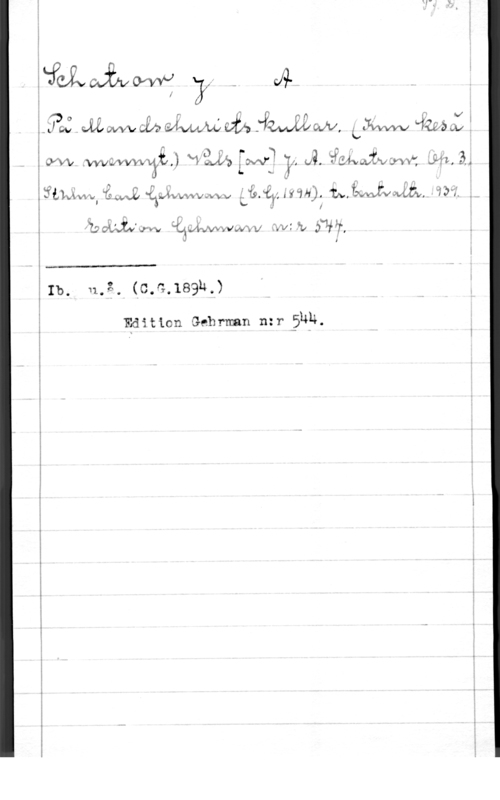 Schatrow, J A
På Mandschuriets kullar. (Kun kesä
on mennyt.) Vals [av] J. A. Schatrow. Op. 3.
Sthlm, Carl Gehrman (C.G. 1894); tr. Centraltr. 1939.
Edition Gehrman n:r 544.
Ib. u.å. (C.G.1894.)
Edition Gehrman n:r 544.